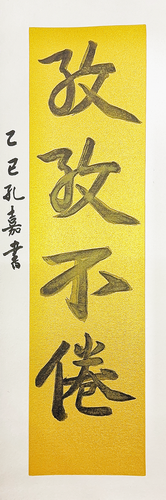 孜孜不倦
乙巳孔嘉書